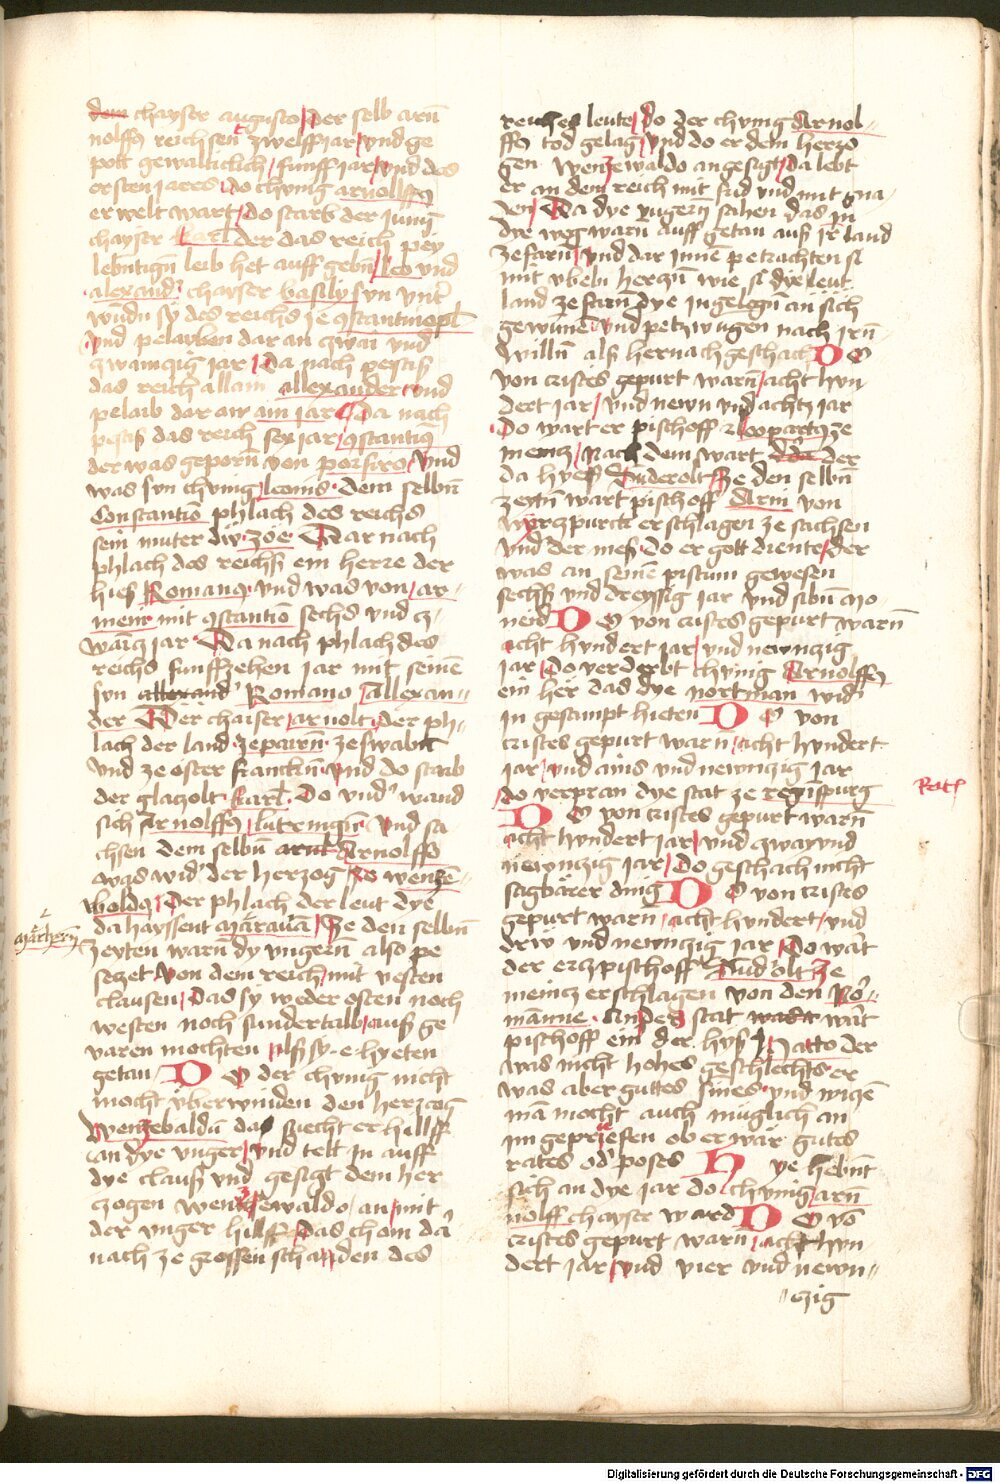 dem chayser augusto Der selb arn
nolffus reichsent zwelff jar und ge
pott gewaltichlich funff jar und des
ersten jares do chunig arnolffus
erwelt wart Do starb der jung
chayser karl der das reich pey
lebntign leib het auff gebn leo und
alexand' chayser basily sun unt'
wudn sy des reichs ze 9stantinopl
und pelaiben dar an zwai und
zwainczig jar Da nach pesas
das reich allain allexander und
pelaib dar an ain jar Da nach
pesas das reich sex jar 9stantin9
der was geporn von porfiro und
was sun chunig leonis dem selbn
Constantino phlach des reichs
sein muter die zoe Dar nach
phlach des reichs ein herre der
hies Roman9 und was von ar
menr mit 9stantino sechs und z
wancz jar Da nach phlach des
reichs funffzehen jar mit seinem
sun allexand' Romano allexan
der Der chaiser arnolt der ph
lach der land ze pairn ze swabn
und ze oster francken und do starb
der glaczolt karl Do und'wand
sich Arnolffus lutringis und sa
chsen dem selbn arnt Arnolffo
was wid' der herzog zw wenze
boldo Der phlach der leut dye
da hayssent maraua Ze den selbn
marhern
zeyten warn dy ungern also pe
sezet von dem reich mit vesten
clausen Das sy weder osten noch
westen noch sundertalb auss ge
varen mochten als sy e hyeten
getan DO der chunig nicht
mocht uberwinden den herzog
Wenzebaldu da suecht er hillff
an dye unger und telt in auff
dye claus und gesigt dem her
zogen wenzewaldo an mit
der unger hilff Das chom da
nach ze grossen schanden des
reiches leute do der chunig Arnol
ffus tod gelag Und do er dem herzo
gen Wenzewaldo angesigt da lebt
er an dem reich mit frid und mit gna
den Da dye ungern sahen das in
dye weg warn auff getan auss ir land
ze farn und dar jnne petrachten si
mit ubeln herzn wie si dye leut
land ze farn dye in gelegn an sich
gewunen und petzwugen nach jrn
willn als hernach geschach DO
von cristes gepurt warn acht hun
dert jar und newn und achtz jar
Do wart er pischoff zeopart9 ze
meincz Nach dem wart der
da hyess Suderolt Ze den selbn
zeytn wart pischoff Arn von
wyrzpurck erschlagen ze sachsen
und der mess do er gott diente der
was an seinem pistum gewesen
sechs und dreyssig jar und sibn mo
neid DO von cristes gepurt warn
acht hundert jar und newnzig
jar Do verderbt chunig Arnolffus
ein her das dye nortman wid'
in gesampt hieten DO von
cristes gepurt warn acht hundert
jar und ains und newnzig jar
do verpran dye stat ze regenspurg
Rat
DO von cristes gepurt warn
acht hundert jar und zway und
newnzig jar Do geschach nicht
sagbarer ding DO von cristes
gepurt warn acht hundert und
driv und newnczig jar Do wart
der erczpischoff Sund'olt ze
meincz erschlagen von den No
manne An des stat wart
pischoff ein der hyss Hatto der
was nicht hohes geschlechts er
was aber guttes sines und wicze
ma mocht auch muglich an
im gepruefen ob er war gutes
rates od' poses Hye hebnt
sich an dye jar do chunig arn
nolff chayser ward DO vo
cristes gepurt warn acht hun
dert jar und vier und newn
czig
Digitalisierung gefördert durch die Deutsche Forschungsgemeinschaft - DFG